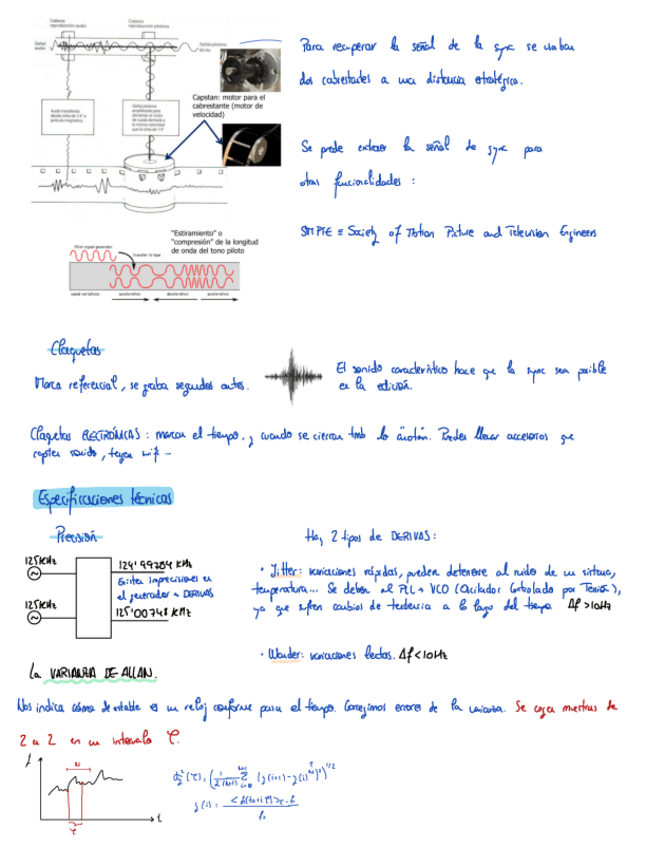 Cabeza reproducción audio
Cabeza reproducción pilotono
Señal audio
Señal pilotono
Capstan: motor para el
cabrestante (motor de
velocidad)
"Estiramiento" o
"compresión" de la longitud
de onda del tono piloto
Pilot signal generator
Transfer to tape
speed variations
acceleration
deceleration
acceleration
Para recuperar la señal de la sync se usaban
dos cabrestantes a una distancia estratégica.
Se puede extraer la señal de sync para
otras funcionalidades:
SMPTE ≡ Society of Motion Picture and Television Engineers
Claquetas
Marca referencial, se graba segundos antes.
El sonido característico hace que la sync sea posible
en la edición.
Claquetas ELECTRÓNICAS: marcan el tiempo, y cuando se cierran tmb lo anotan. Pueden llevar accesorios que
capten sonido, tengan wifi -
Especificaciones técnicas
Precisión
125KHz
124'99784 KHz
Existen imprecisiones en
el generador → DERIVAS
125KHz
125'00748 KHz
Hay 2 tipos de DERIVAS:
• Jitter: variaciones rápidas, pueden deberse al ruido de un sistema,
temperatura... Se deben al PLL + VCO (Oscilador Controlado por Tensión),
ya que sufren cambios de tendencia a lo largo del tiempo Δf>10Hz
• Wander: variaciones lentas. Δf<10Hz
La VARIANZA DE ALLAN.
Nos indica cómo de estable es un reloj conforme pasa el tiempo. Corregimos errores de la varianza. Se cogen muestras de
2 en 2 en un intervalo τ.
f
N
τ
t